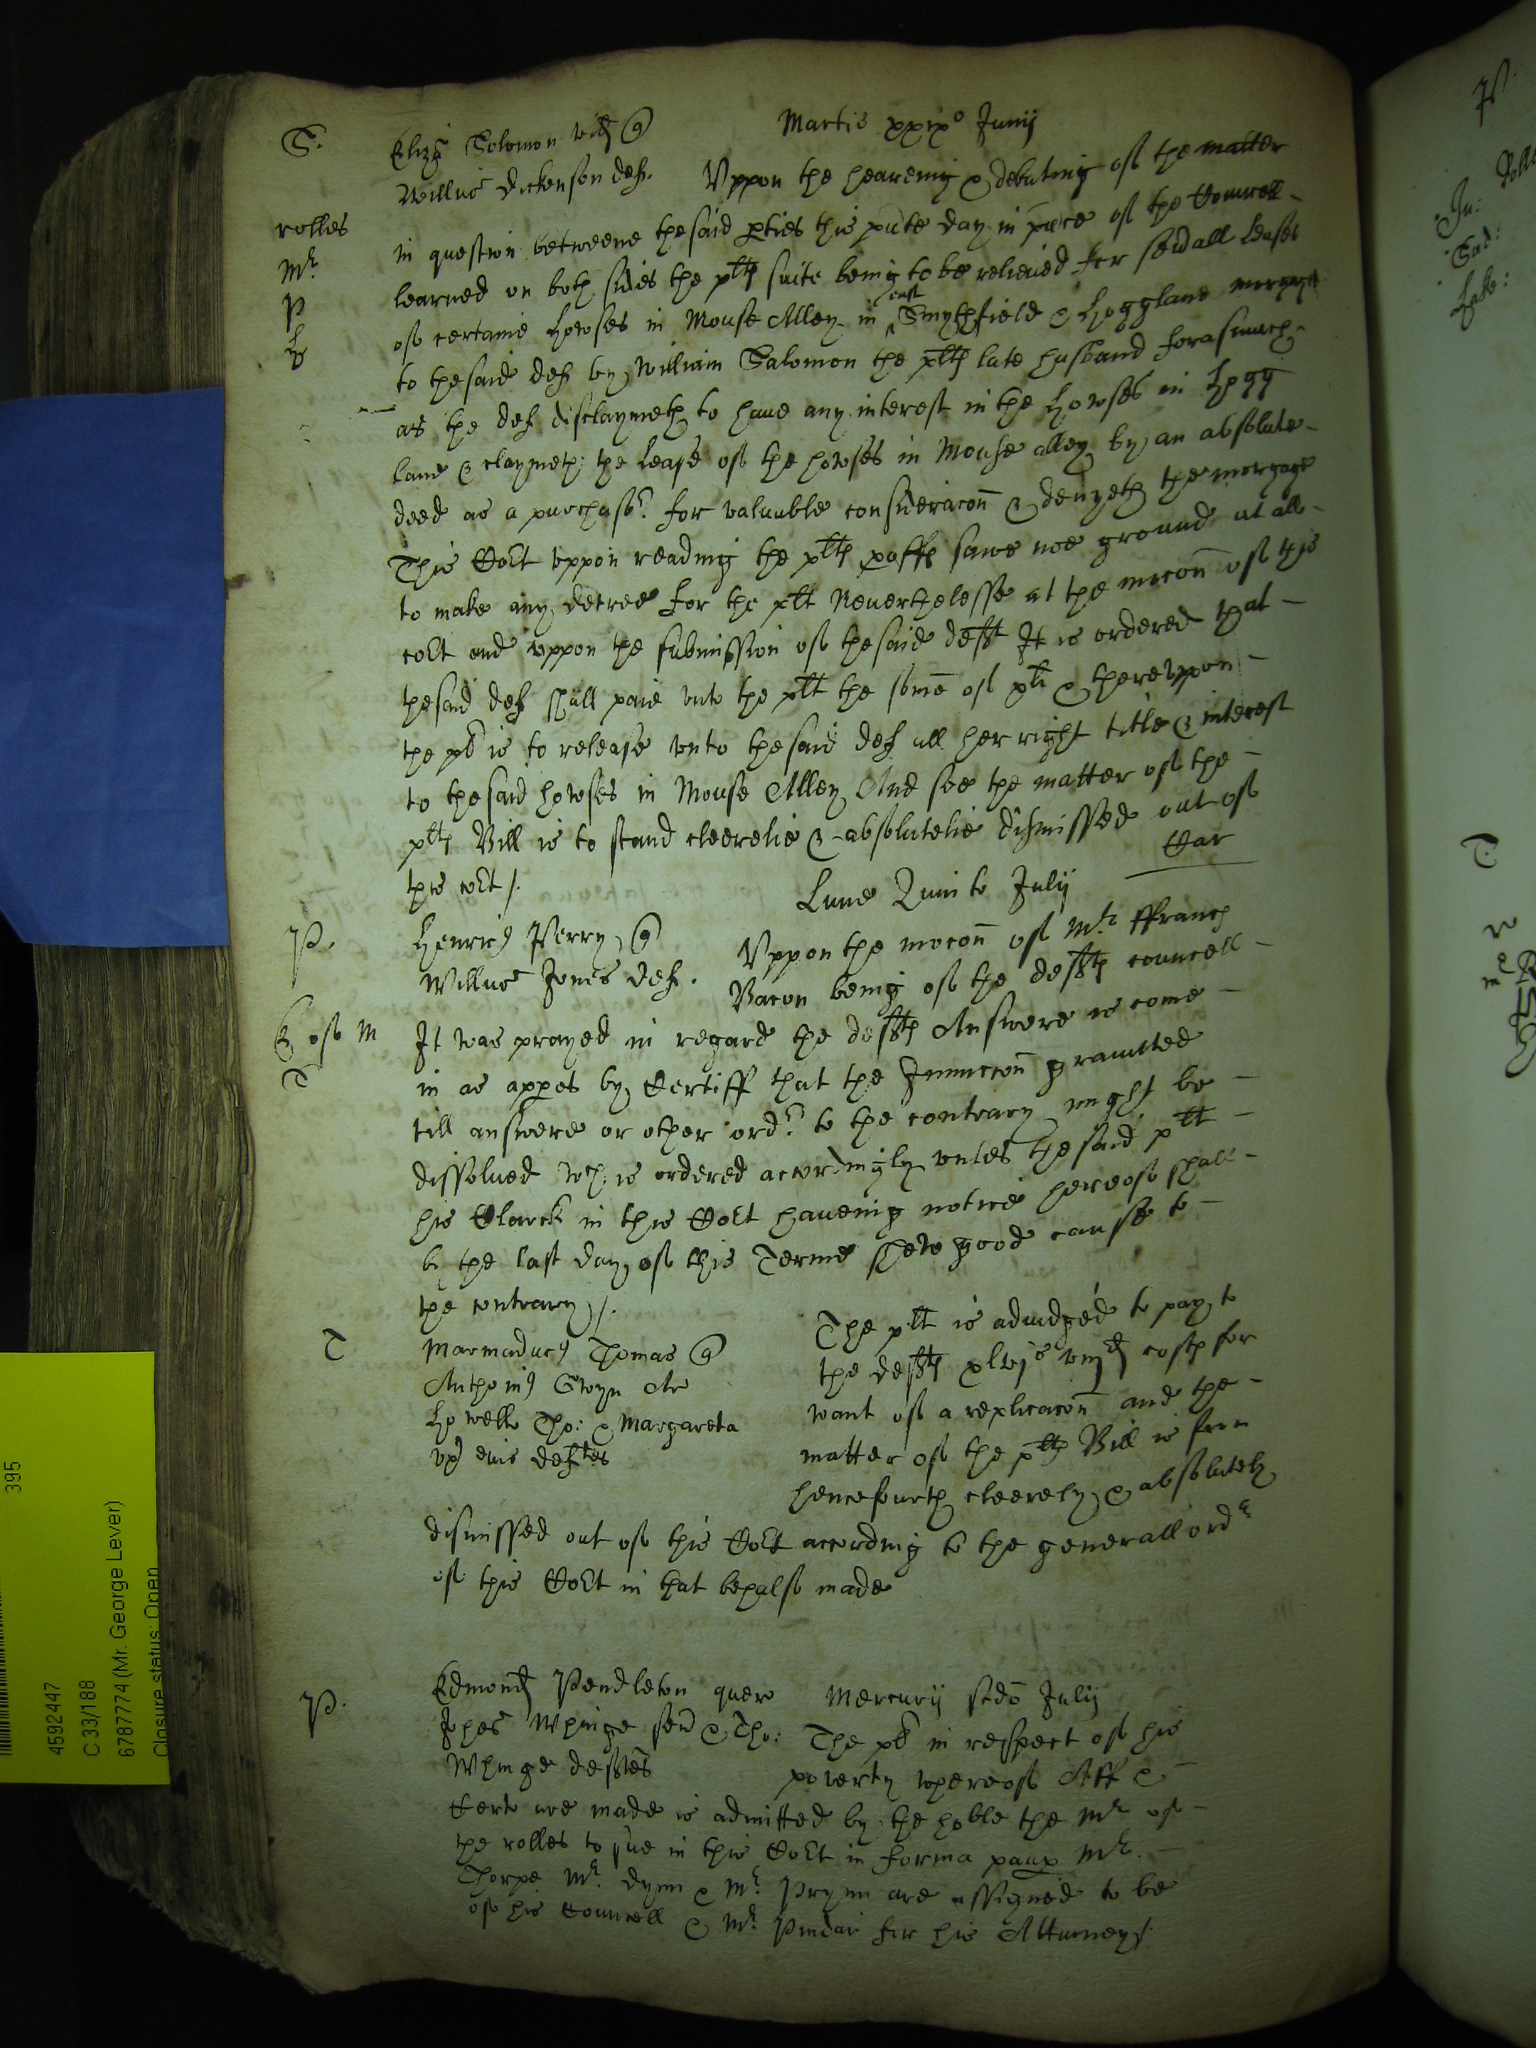 Martis xxix° Junij
S. Eliz: Solomon vid q
Willus Dickenson def. Vppon the heareing & debating of the matter
rolles in question betweene thesaid pties this pnte day in pnce of the Councell
Mr learned on both sides the plts suite being to be releived for seuall leases
p of certaine howses in Mouse Alley in east Smythfield & Hogglane morgaged
H to thesaid def by William Salomon the plts late husband forasmuch
as the def disclaymeth to haue any interest in the howses in Hogg
lane & claymeth the lease of the howses in Mouse alley by an absolute
deed as a purchasr for valuable consideracon & denyeth the morgage
This Cort vppon reading the plts proffs sawe noe ground at all
to make any decree for the plt Neuerthelesse at the mocon of this
cort and vppon the submission of thesaid deft It is ordered that
thesaid def shall paie vnto the plt the some of xli & therevppon
the pl is to release vnto thesaid def all her right title & interest
to thesaid howses in Mouse Alley And soe the matter of the
plts Bill is to stand cleerelie & absolutelie dismissed out of
this cort /. Car
Lune Quinto Julij
P. Henric9 Perry q Vppon the mocon of Mr ffranch
Willus Jones def. Bacon being of the defts councell
B of M It was prayed in regard the defts Answere is come
T in as appes by Certiff that the Iniuncon graunted
till answere or other ordr to the contrary might be
dissolued wch is ordered accordingly vnles thesaid plt
his Clarck in this Cort haueing notice hereof shall
by the last day of this Terme shew good cause to
the contrary /.
T Marmaduc9 Thomas q The plt is adiudged to pay to
Anthoni9 Gwyn Ar the defts xlvjs viijd costs for
Howell Tho: & Margareta want of a replicacon and the
vx eius deftes matter of the plts Bill is from
hencefourth cleerely & absolutely
dismissed out of this Cort according to the generall ordr
of this Cort in that behalf made
P. Edmond Pendleton quer Mercurij scdo Julij
Johes Whinge sen & Tho: The pl in respect of his
Whinge deftes poverty whereof Aff &
Cert are made is admitted by the hoble the Mr of
the rolles to sue in this Cort in forma paup Mr.
Thorpe Mr. Dynn & Mr. Prynn are assigned to be
of his Councell & Mr. Pindar for his Atturney /.
395
4592447
C 33/188
6787774 (Mr. George Lever)
Closure status: Open